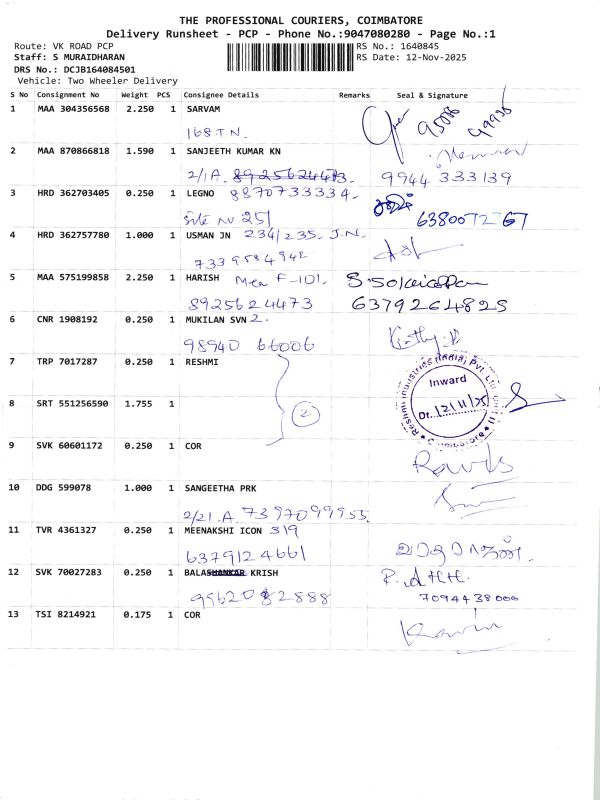 THE PROFESSIONAL COURIERS, COIMBATORE
Delivery Runsheet - PCP - Phone No.:9047080280 - Page No.:1
Route: VK ROAD PCP
RS No.: 1640845
Staff: S MURAIDHARAN
RS Date: 12-Nov-2025
DRS No.: DCJB164084501
Vehicle: Two Wheeler Delivery
S No Consignment No Weight PCS Consignee Details Remarks Seal & Signature
1 MAA 304356568 2.250 1 SARVAM
168 T.N.
2 MAA 870866818 1.590 1 SANJEETH KUMAR KN
2/1A. 8925624473. 9944 333139
3 HRD 362703405 0.250 1 LEGNO 8870733334.
Site No 251
4 HRD 362757780 1.000 1 USMAN JN 234/235. J.N.
7339584942
5 MAA 575199858 2.250 1 HARISH F-101.
8925624473 6379264825
6 CNR 1908192 0.250 1 MUKILAN SVN 2.
98940 66006
7 TRP 7017287 0.250 1 RESHMI
Reshmi Industries (India) Pvt. Ltd. Unit II
Inward
Dt. 12/11/25
Coimbatore
8 SRT 551256590 1.755 1
2
9 SVK 60601172 0.250 1 COR
10 DDG 599078 1.000 1 SANGEETHA PRK
2/21.A. 7397099955.
11 TVR 4361327 0.250 1 MEENAKSHI ICON 319
6379124661
12 SVK 70027283 0.250 1 BALASHANKAR KRISH
7094438000
13 TSI 8214921 0.175 1 COR